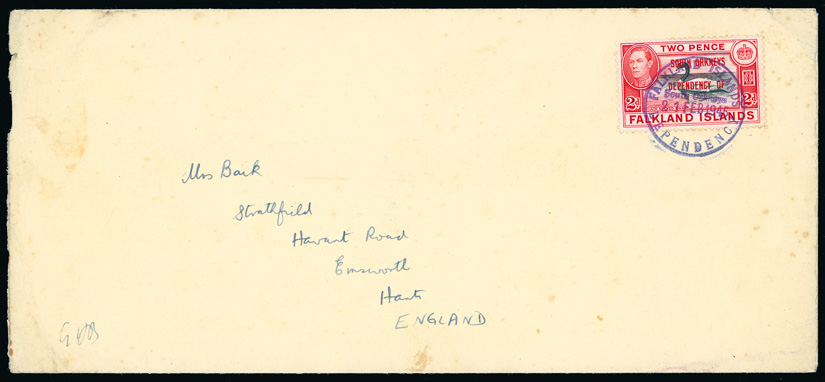 TWO PENCE
SOUTH ORKNEYS
DEPENDENCY OF
2d 2d
FALKLAND ISLANDS
FALKLAND ISLANDS
South Orkneys
21 FEB 1946
DEPENDENCY
Mrs Bark
Strathfield
Havant Road
Emsworth
Hants
ENGLAND